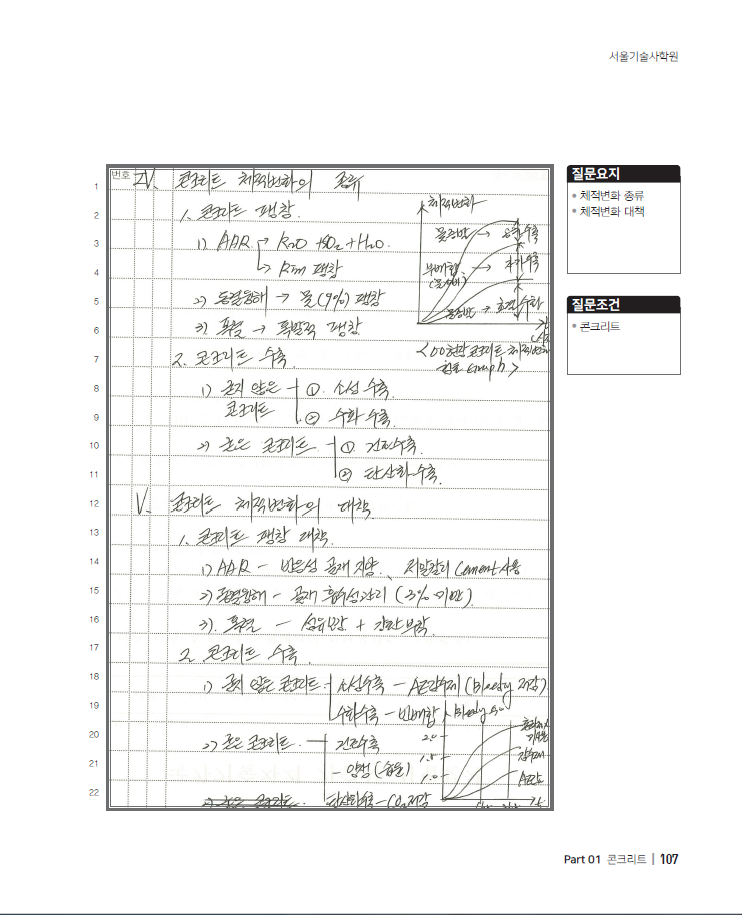 서울기술사학원
번호
질문요지
• 체적변화 종류
• 체적변화 대책
질문조건
• 콘크리트
1 Ⅳ. 콘크리트 체적변화의 종류
2 1. 콘크리트 팽창.
3 1) AAR → R2O + SiO2 + H2O.
4 ↳ Rim 팽창
5 2) 동결융해 → 물(9%) 팽창
6 3) 폭렬 → 폭발적 팽창.
7 2. 콘크리트 수축.
8 1) 굳지 않은 ① 소성 수축
9 콘크리트 ② 수화 수축.
10 2) 굳은 콘크리트 ① 건조수축.
11 ② 탄산화 수축.
체적변화
물증발 → 건조수축
부배합 →
물증발 → 소성수축
콘크리트 체적변화
Graph >
12 Ⅴ. 콘크리트 체적변화의 대책
13 1. 콘크리트 팽창 대책.
14 1) AAR - 반응성 골재 지양. 저알칼리 Cement 사용
15 2) 동결융해 - 골재 흡수성관리 (3% 미만)
16 3) 폭렬 - 섬유보강 + 강판 부착.
17 2. 콘크리트 수축.
18 1) 굳지 않은 콘크리트 소성수축 - AE감수제 (Bleeding 저감)
19 수화수축 - 빈배합
20 2) 굳은 콘크리트. 건조수축
21 - 양생 (습윤)
22 탄산화수축 - CO2 저감
Bleeding
2.0
1.5
1.0
감수제
AE감수제
Part 01 콘크리트 | 107